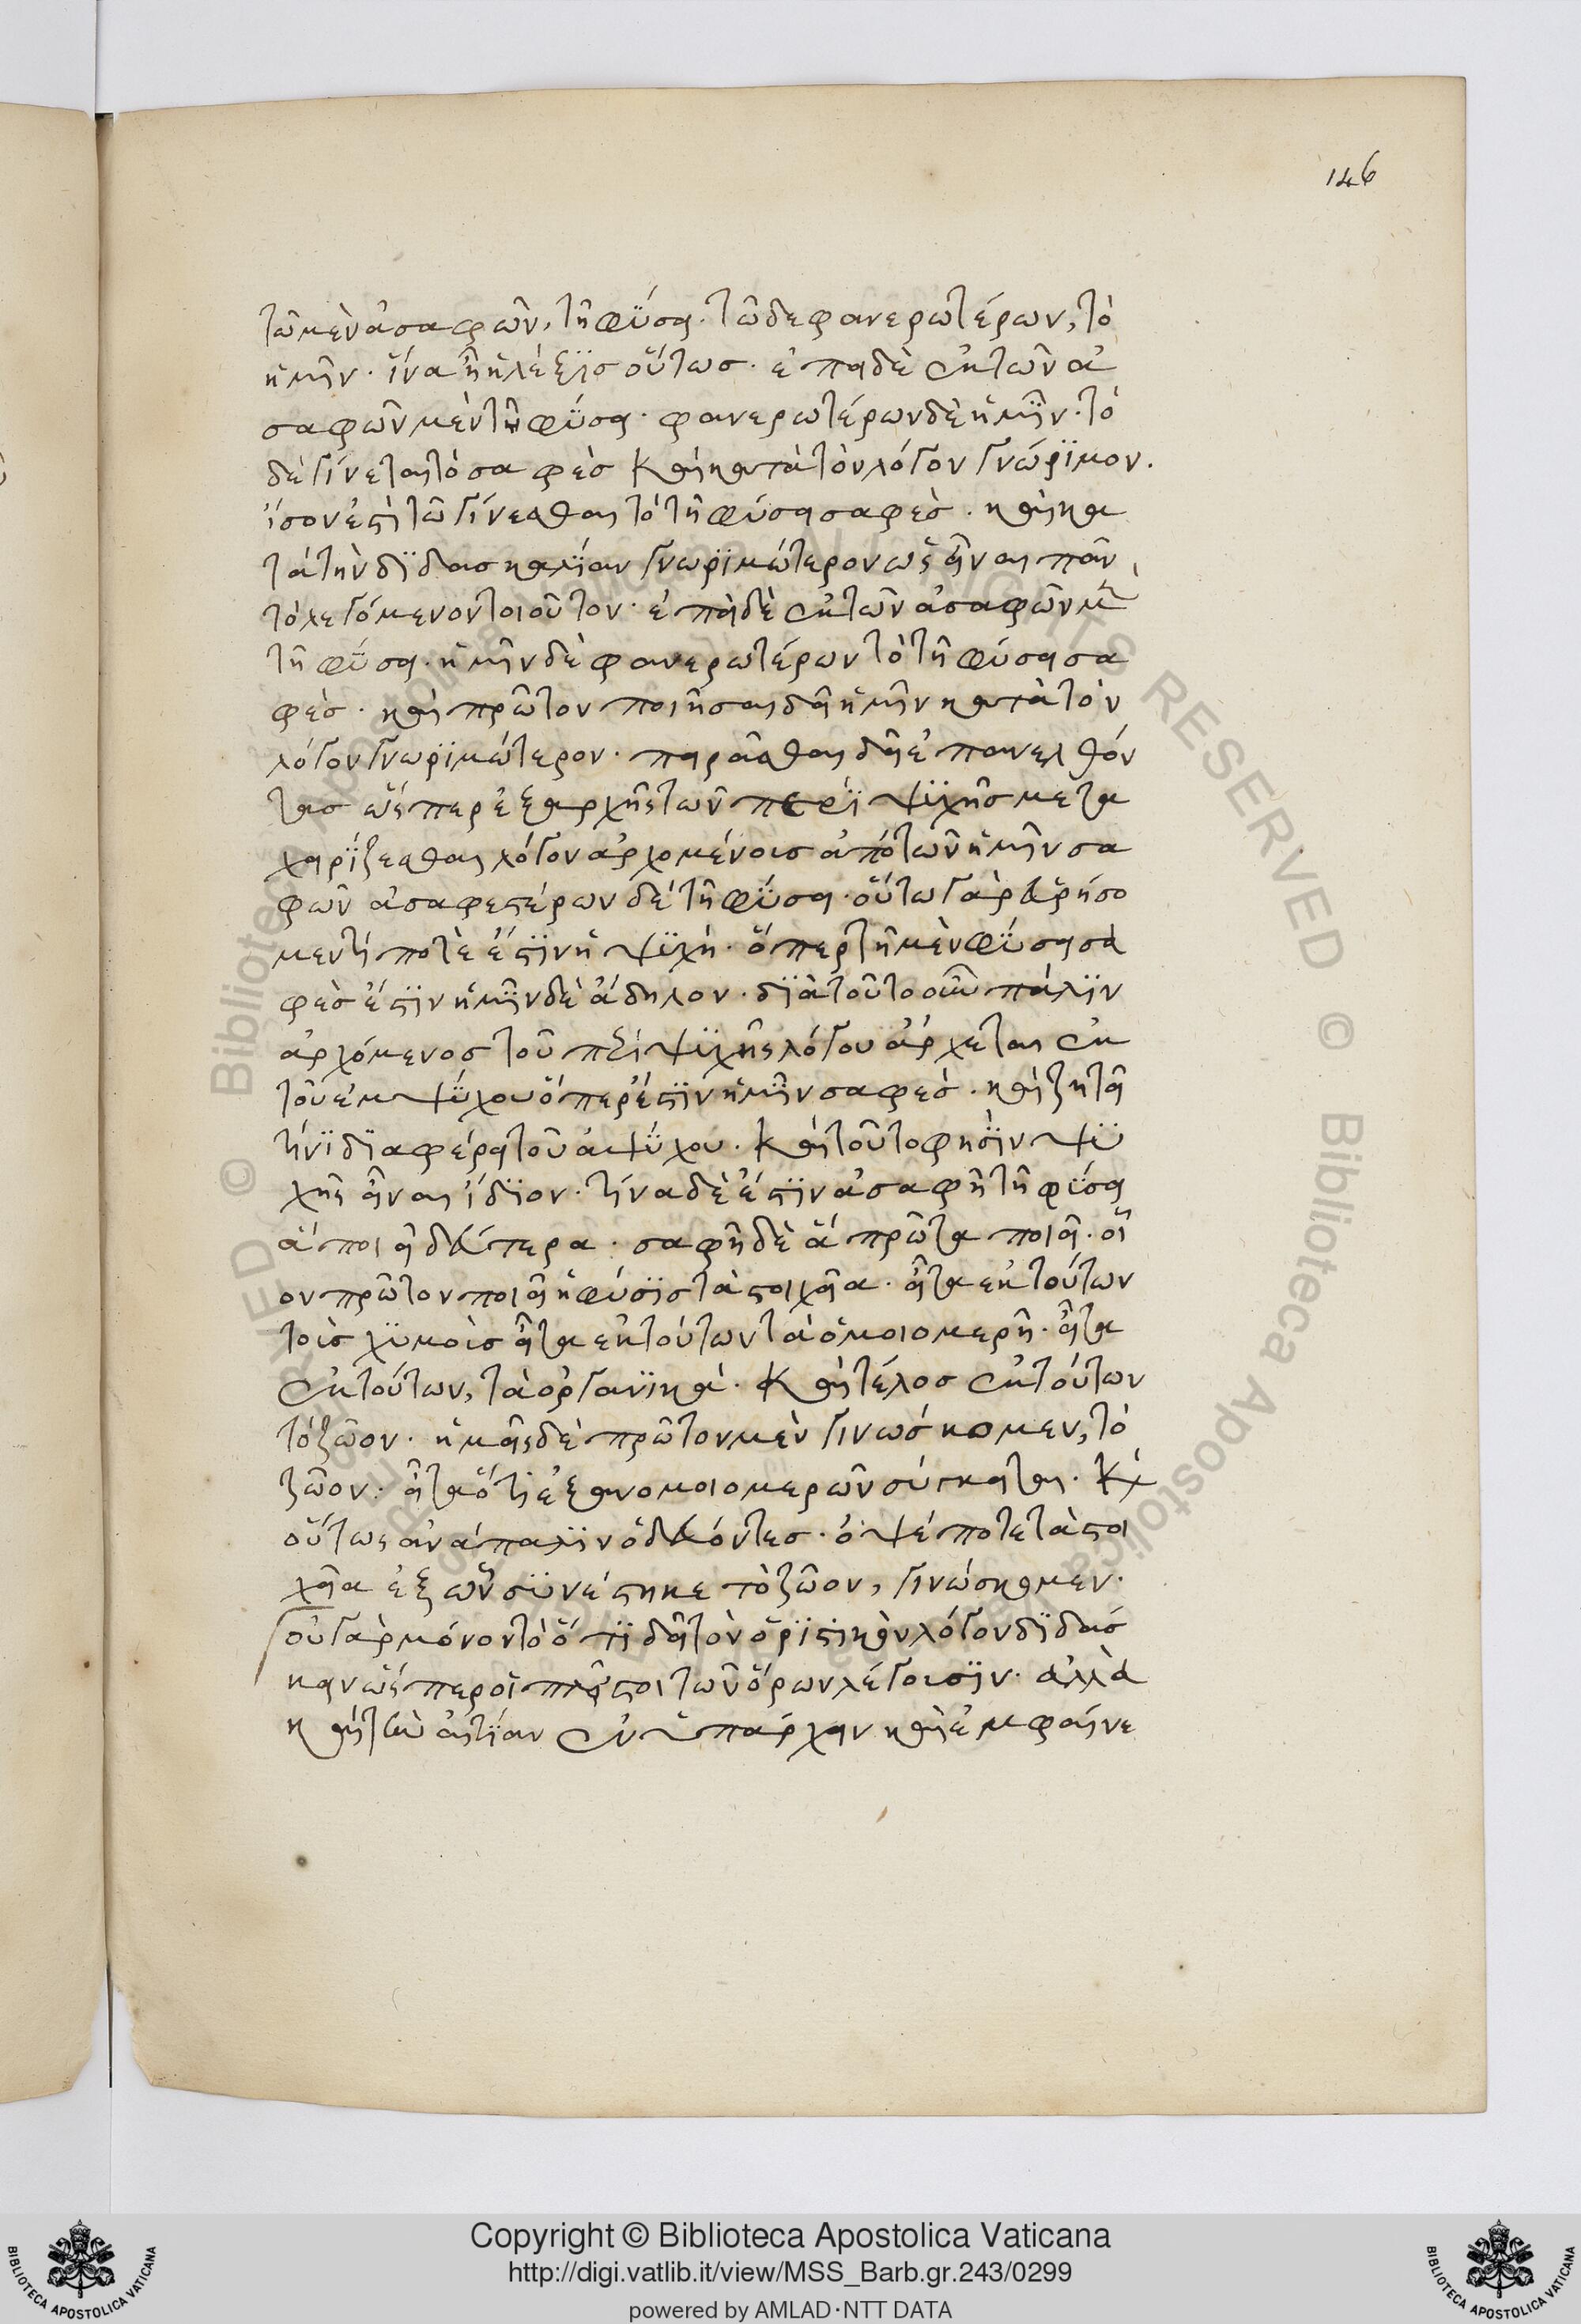 146
τῶ μὲν ἀσαφῶν, τῇ φύσει. τῶ δε φανερωτέρων, τὸ
ἡμῖν. ἵνα ἦ ἡ λέξϊς οὕτως. ἐπειδὲ ἐκ τῶν ἀ
σαφῶν μὲν τῇ φϋσει. φανερωτέρων δὲ ἡμῖν. τὸ
δὲ γίνεται τὸ σαφὲς καὶ κατὰ τὸν λόγον γνώρϊμον.
ἴσον ἐστὶ τῶ γίνεσθαι τὸ τῇ φύσει σαφὲς. καὶ κα
τὰ τὴν δϊδασκαλΐαν γνωρϊμώτερον ὡς εἶναι πᾶν
τὸ λεγόμενον τοιοῦτον. ἐπειδὲ ἐκ τῶν ἀσαφῶν μὲν
τῇ φΰσει. ἡμῖν δὲ φανερωτέρων τὸ τῇ φύσει σα
φὲς. καὶ πρῶτον ποιῆσαι δεῖ ἡμῖν κατὰ τὸν
λόγον γνωρϊμώτερον. πειρᾶσθαι δεῖ ἐπανελθόν
τας ὥσπερ ἐξ ἀρχῆς τῶν περῒ ψϋχῆς μετα
χειρΐζεσθαι λόγον ἀρχομένοις ἀπὸ τῶν ἡμῖν σα
φῶν ἀσαφεστέρων δὲ τῇ φΰσει. οὕτω γὰρ εὑρήσο
μεν τί ποτὲ ἐστϊν ἡ ψϋχή. ὅπερ τῇ μὲν φΰσει σα
φὲς ἐστϊν ἡμῖν δὲ ἄδηλον. δϊὰ τοῦτο οὖν πάλϊν
ἀρχόμενος τοῦ περὶ ψϋχῆς λόγου ἄρχεται ἐκ
τοῦ ἐμψΰχου ὅπερ ἐστϊν ἡμῖν σαφὲς. καὶ ζητεῖ
τίνϊ δϊαφέρει τοῦ ἀψΰχου. καὶ τοῦτο φησῒν ψϋ
χῆς εἶναι ἴδϊον. τίνα δὲ ἐστϊν ἀσαφῆ τῇ φΰσει
ἅ ποιεῖ δεύτερα. σαφῆ δὲ ἅ πρῶτα ποιεῖ. οἷ
ον πρῶτον ποιεῖ ἡ φύσϊς τὰ στοιχεῖα. εἶτα ἐκ τούτων
τοὶς χϋμοὶς εἶτα ἐκ τούτων τὰ ὁμοιομερῆ. εἶτα
ἐκ τούτων, τὰ ὀργανϊκά. καὶ τέλος ἐκ τούτων
τὸ ζῶον. ἡμεῖς δὲ πρῶτον μὲν γινώσκομεν, τὸ
ζῶον. εἶτα ὅτι ἐξ ἀνομοιομερῶν σύγκειται. καὶ
οὕτως ἀνάπαλϊν ὁδεύοντες. ὀψέ ποτε τὰ στοι
χεῖα ἐξ ὧν σϋνέστηκε τὸ ζῶον, γινώσκομεν.
οὐ γὰρ μόνον τὸ ὅτϊ δεῖ τὸν ὁρϊστϊκὸν λόγον δϊδάσ
κειν ὥσπερ οἱ πλεῖστοι τῶν ὅρων λέγουσϊν. ἀλλὰ
καὶ τὴν αἰτΐαν ἐνυπάρχειν καὶ ἐμφαίνε
Copyright © Biblioteca Apostolica Vaticana
http://digi.vatlib.it/view/MSS_Barb.gr.243/0299
powered by AMLAD·NTT DATA